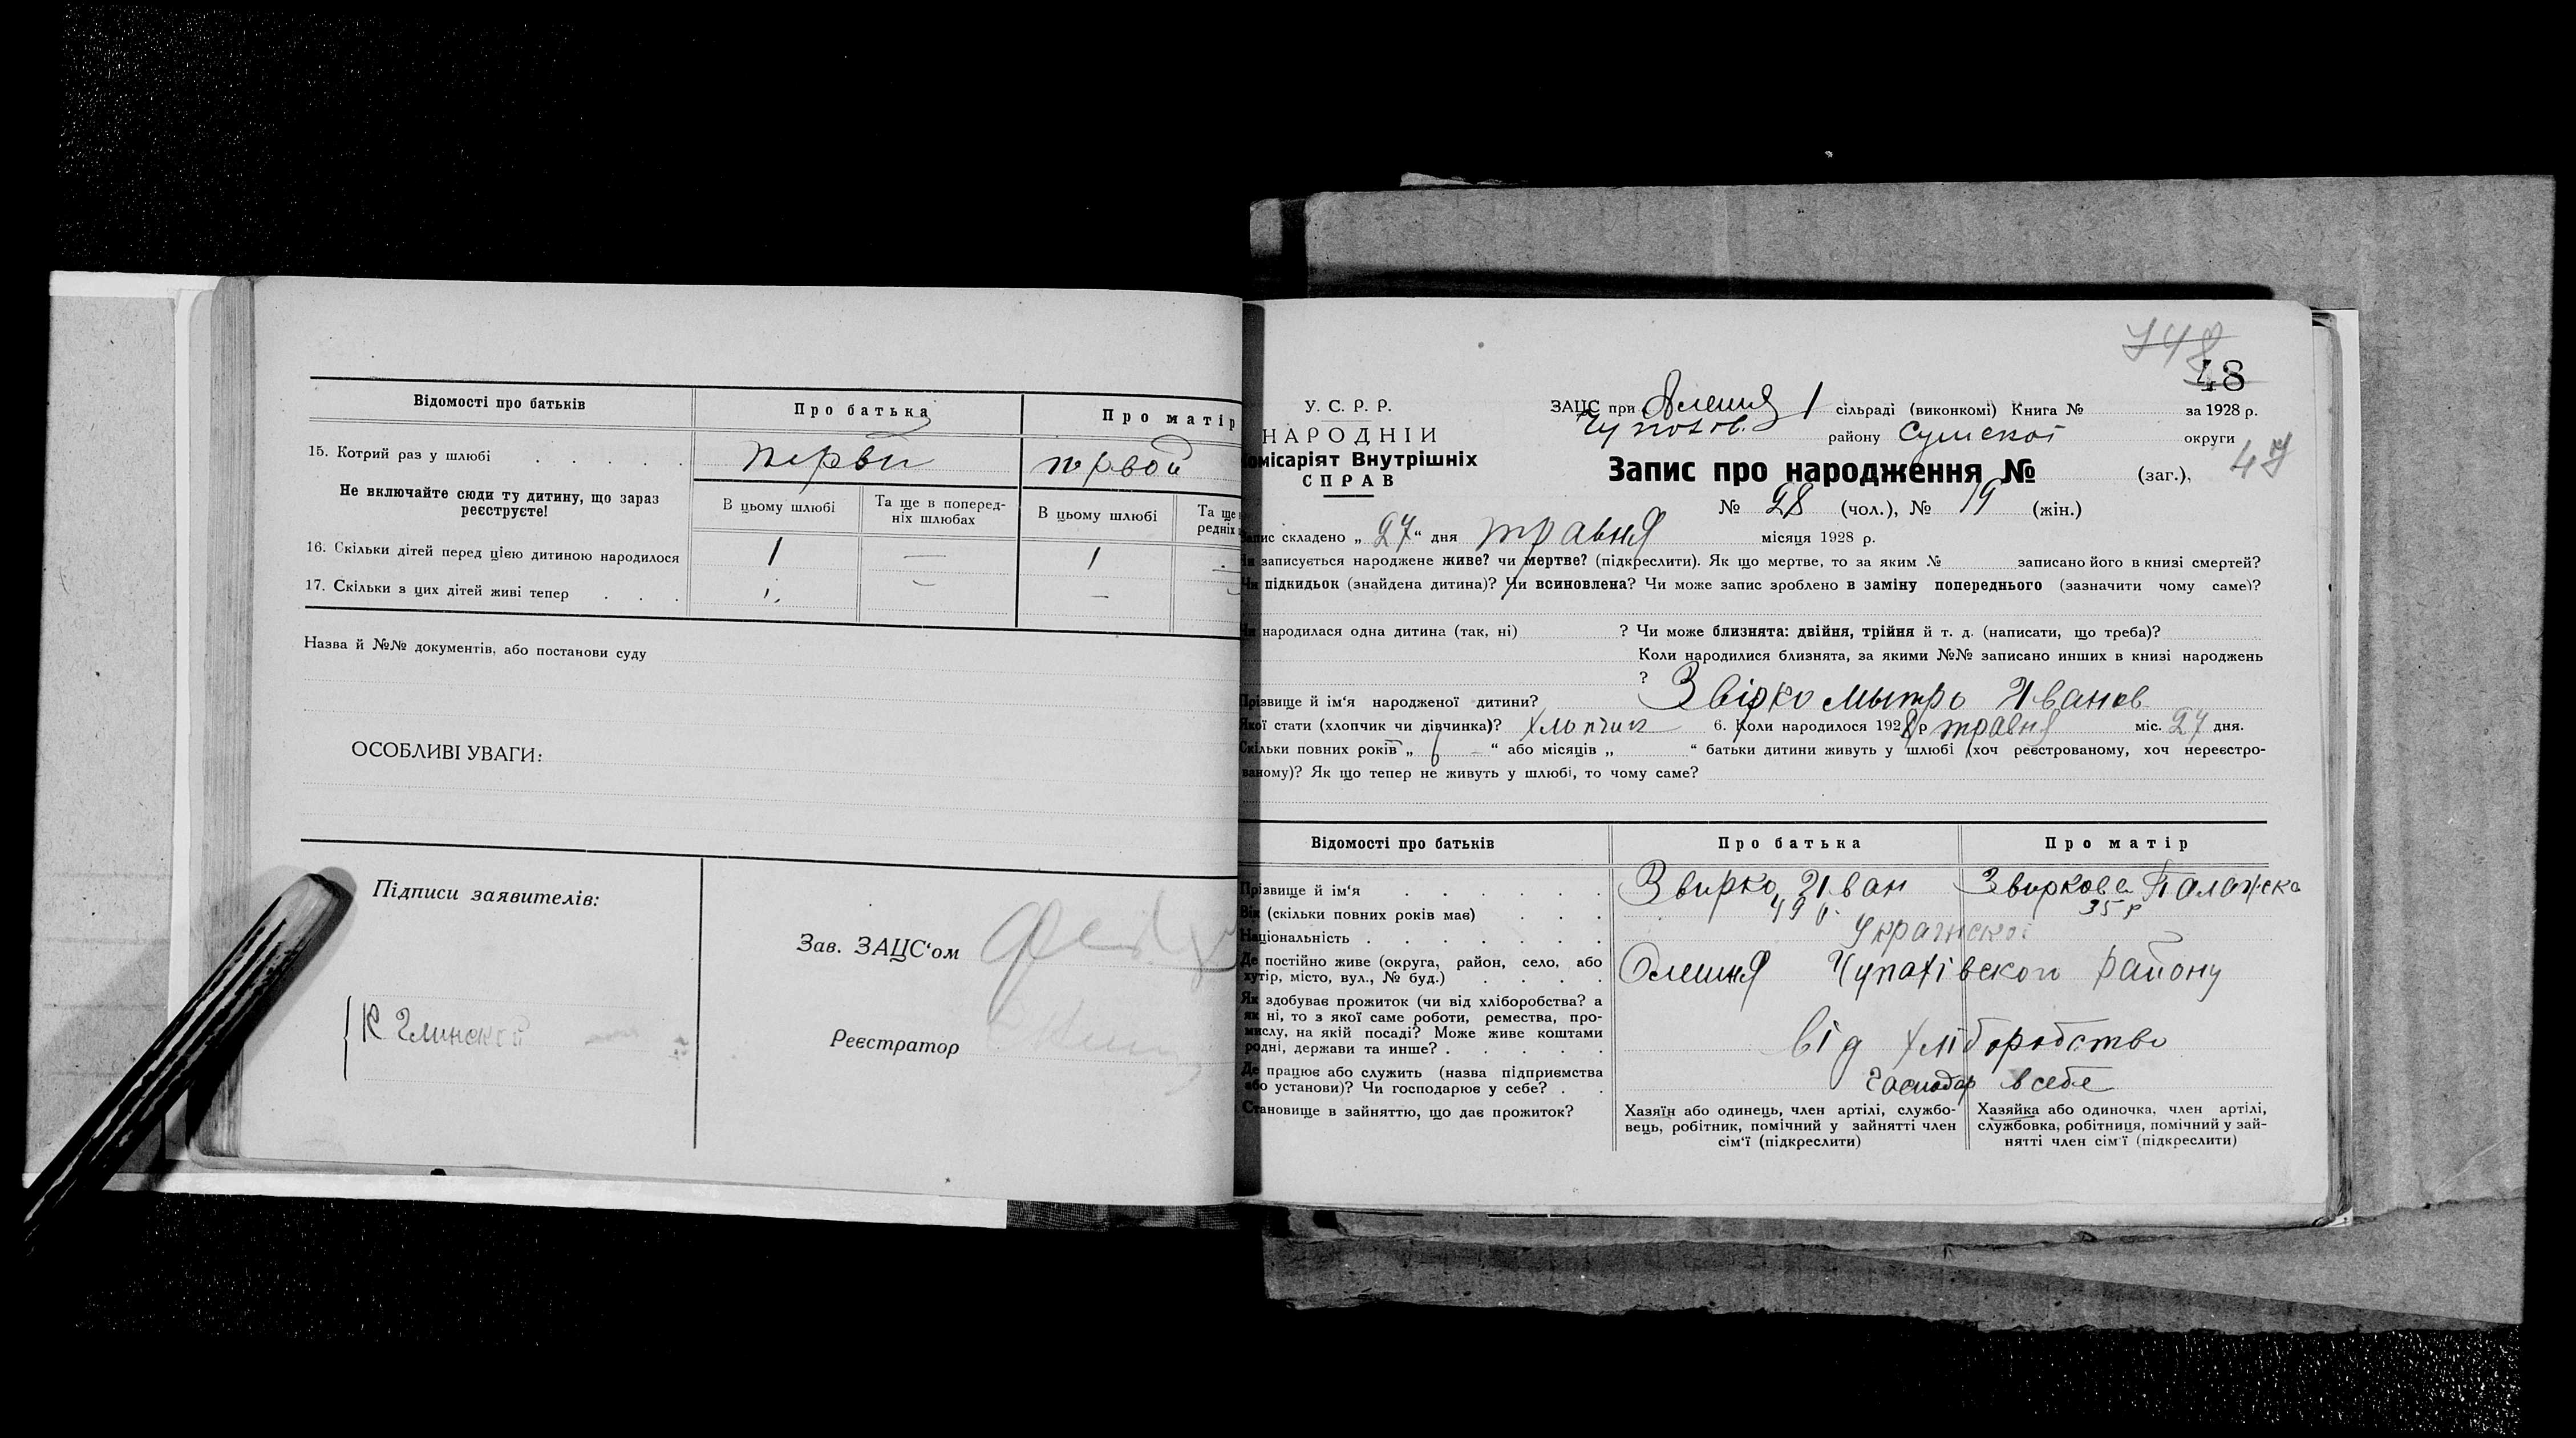 Відомості про батьків
Про батька
Про матір
15. Котрий раз у шлюбі
первий
первой
Не включайте сюди ту дитину, що зараз
реєструєте!
В цьому шлюбі
Та ще в поперед-
ніх шлюбах
В цьому шлюбі
Та ще
редніх
16. Скільки дітей перед цією дитиною народилося
1 — 1
17. Скільки з цих дітей живі тепер
1. — —
Назва й №№ документів, або постанови суду
ОСОБЛИВІ УВАГИ:
Підписи заявителів:
К Глинской
Зав. ЗАЦС'ом
Реєстратор
148
48
У. С. Р. Р.
НАРОДНІЙ
Комісаріят Внутрішніх
СПРАВ
ЗАЦС при Олешня 1 сільраді (виконкомі) Книга № за 1928 р.
Чупахов. району Сумской округи
47
Запис про народження № (заг.),
№ 28 (чол.), № 19 (жін.)
Запис складено „ 27 “ дня травня місяця 1928 р.
Чи записується народжене живе? чи мертве? (підкреслити). Як що мертве, то за яким № записано його в книзі смертей?
Чи підкидьок (знайдена дитина)? Чи всиновлена? Чи може запис зроблено в заміну попереднього (зазначити чому саме)?
Чи народилася одна дитина (так, ні) ? Чи може близнята: двійня, трійня й т. д. (написати, що треба)?
Коли народилися близнята, за якими №№ записано инших в книзі народжень
?
Прізвище й ім'я народженої дитини? Звірко Мытро Иванов
Якої стати (хлопчик чи дівчинка)? хлопчик 6. Коли народилося 1928 р травня міс. 27 дня.
Скільки повних років „ 6 “ або місяців „ “ батьки дитини живуть у шлюбі (хоч реєстрованому, хоч нереєстро-
ваному)? Як що тепер не живуть у шлюбі, то чому саме?
Відомості про батьків
Про батька
Про матір
Прізвище й ім'я
Звирко Иван
Звиркова Палажка
Вік (скільки повних років має)
49 р.
35 р
Національність
Украинской
Де постійно живе (округа, район, село, або
хутір, місто, вул., № буд.)
Олешня Чупахівского району
Як здобуває прожиток (чи від хліборобства? а
як ні, то з якої саме роботи, ремества, про-
мислу, на якій посаді? Може живе коштами
родні, держави та инше?
від хліборобство
Де працює або служить (назва підприємства
або установи)? Чи господарює у себе?
господар в себе
Становище в зайняттю, що дає прожиток?
Хазяїн або одинець, член артілі, службо-
вець, робітник, помічний у зайнятті член
сім'ї (підкреслити)
Хазяйка або одиночка, член артілі,
службовка, робітниця, помічний у зай-
нятті член сім'ї (підкреслити)